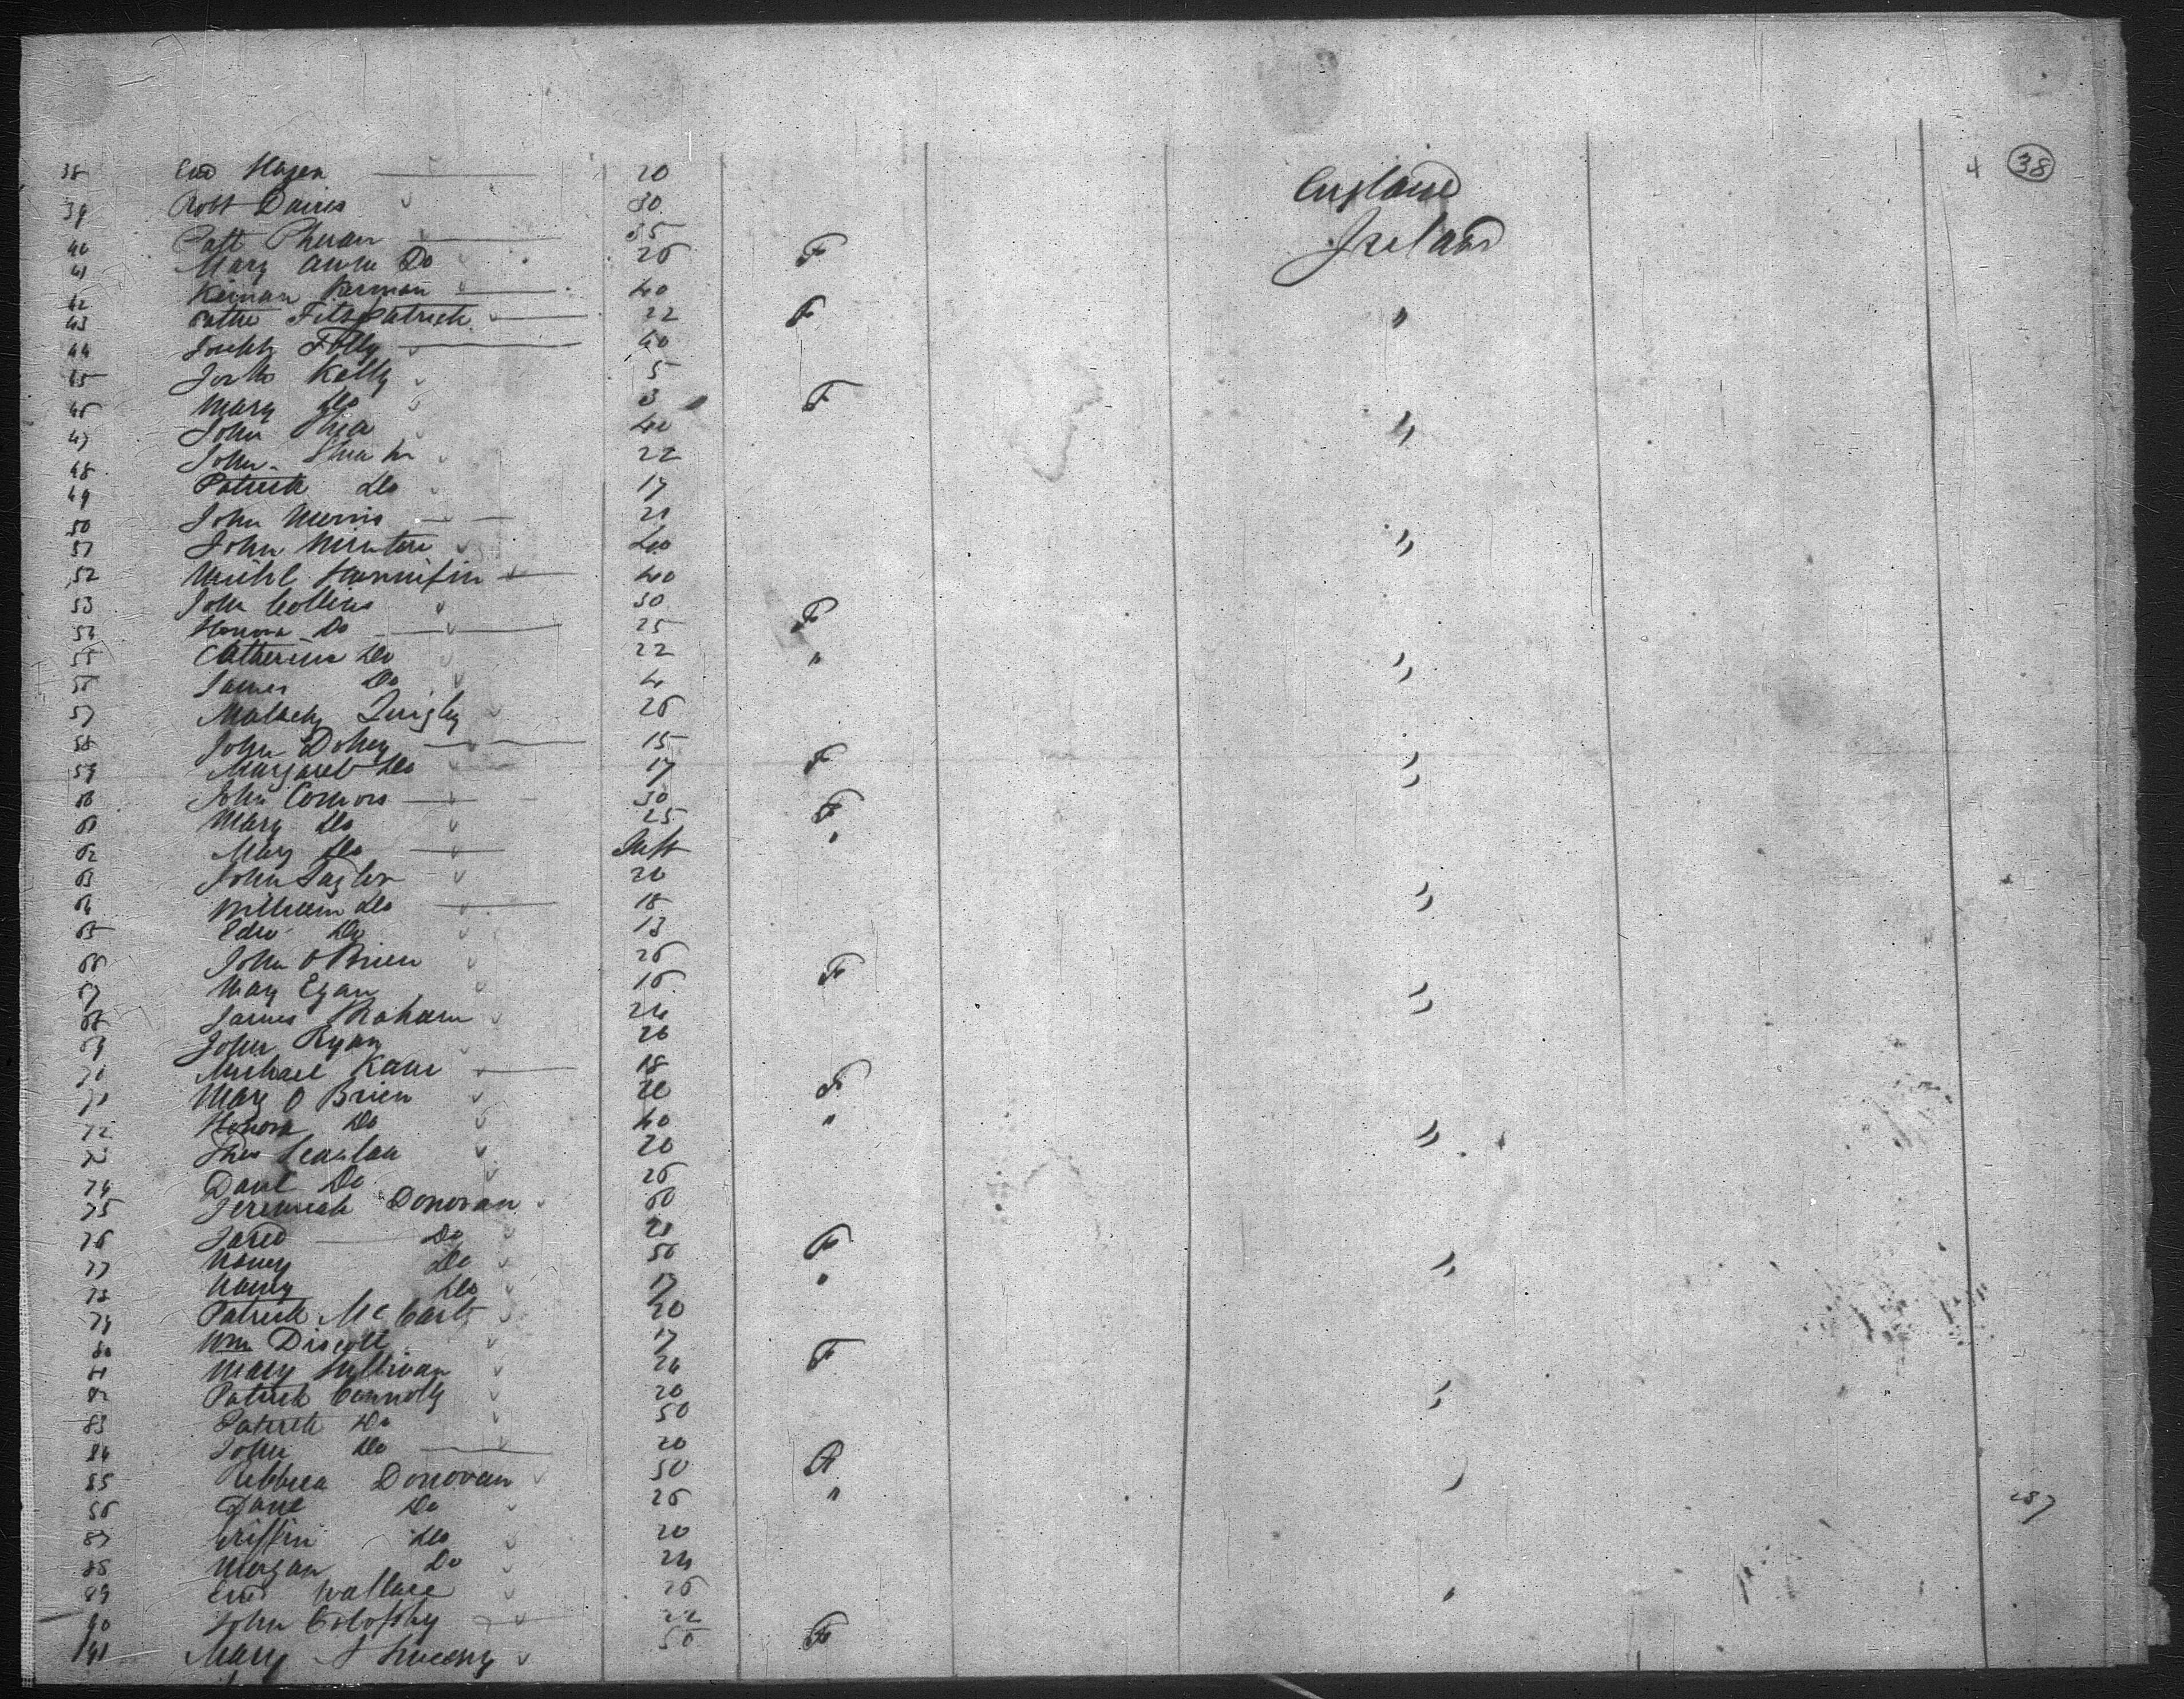 4 38
38 Hagen 20 England
39 Robt Davies 30 Ireland
40 Patt 35
41 Mary Anne Do 26 F
42 40
43 Fitzpatrick 22 F "
44 Joseph 40
45 Kelly 5
46 Mary Do 3 F
47 John Shea 40 "
48 John Shea Jr 22
49 Patrick Do 17
50 John Morris 21
51 John 40 "
52 Michl Hannifin 40
53 John Collins 30
54 Honora Do 25 F
55 Catherine Do 22 " "
56 James Do 4
57 Malachy Quigley 26
58 John Dohey 15
59 Margaret Do 17 F "
60 John Connors 30
61 Mary Do 25 F
62 Mary Do Inft "
63 John Taylor 20
64 William Do 18 "
65 Edw Do 13
66 John O Brien 26
67 Mary Egan 16 F "
68 James 24
69 John Ryan 20
70 Michael Kane 18
71 Mary O Brien 20 F
72 Honora Do 40 " "
73 Thos Scanlan 20
74 Danl Do 26
75 Jeremiah Donovan 60
76 Do 20
77 Do 50 F "
78 Nancy Do 17 "
79 Patrick McCarty 20
80 Wm Discoll 17
81 Mary Sullivan 24 F
82 Patrick Connolly 20 "
83 Patrick Do 50
84 John Do 20
85 Rebbeca Donovan 50 F "
86 Do 26 " 287
87 Griffin Do 20
88 Morgan Do 24
89 Wallace 26 "
90 John 22
91 Mary Sweeny 50 F